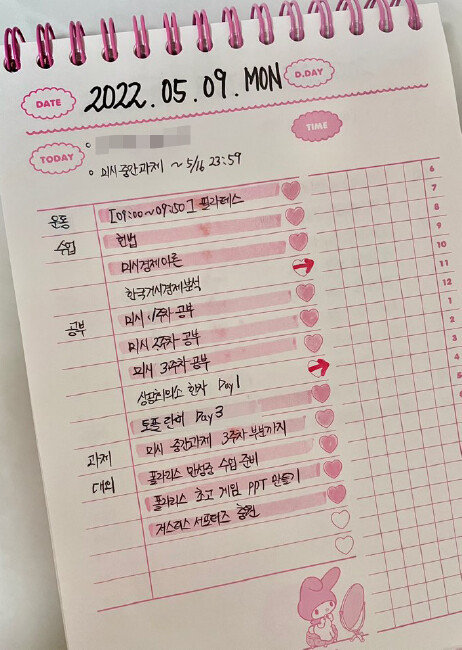 DATE
2022.05.09.MON
D.DAY
TODAY
미시 중간과제 ~ 5/16 23:59
TIME
운동 [09:00~09:50] 필라테스
수업 헌법
미시경제이론
한국거시경제분석
공부 미시 1주차 공부
미시 2주차 공부
미시 3주차 공부
상공회의소 한자 Day 1
토플 단어 Day 3
과제 미시 중간과제 3주차 부분까지
대외 폴라리스 안성중 수업 준비
폴라리스 초고 게임 PPT 만들기
저스티스 서포터즈 응원
6
7
8
9
10
11
12
1
2
3
4
5